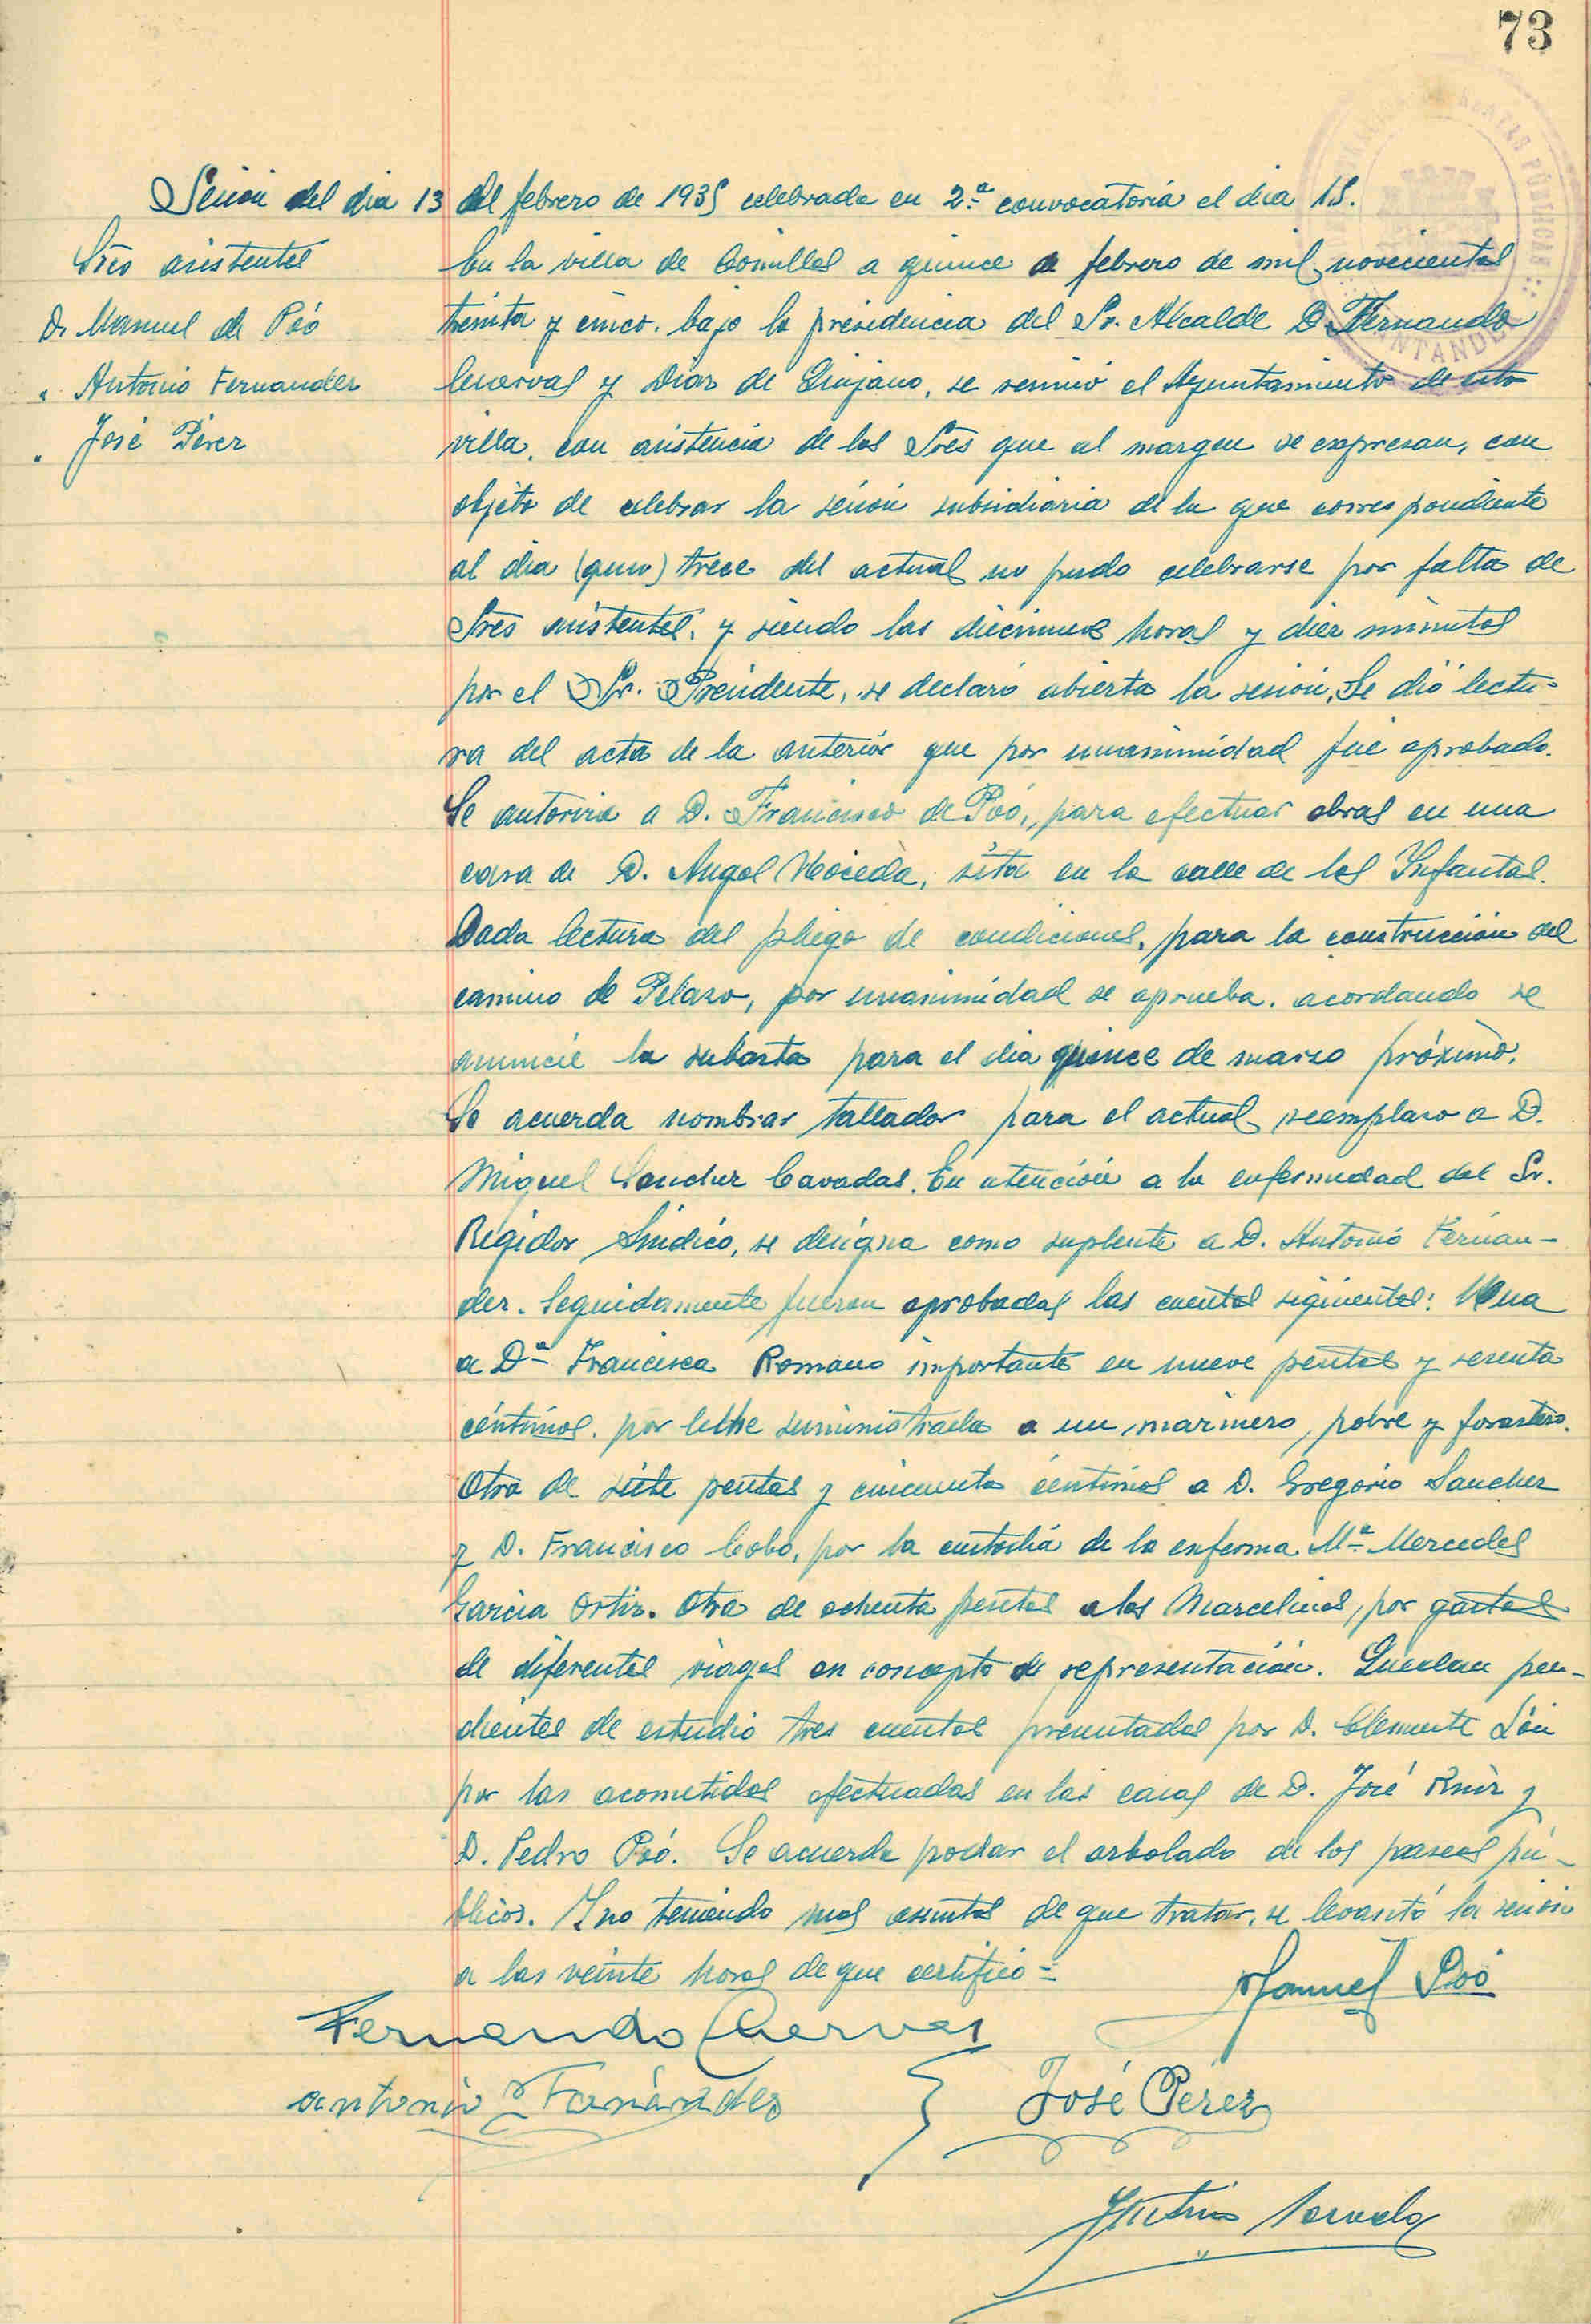 73
Sesión del dia 13 del febrero de 1935 celebrada en 2.ª convocatoria el dia 15.
Sres asistentes
D. Manuel de Poó
" Antonio Fernandez
" José Pérez
En la villa de Comillas a quince de febrero de mil novecientos
treinta y cinco. bajo la presidencia del Sr. Alcalde D. Fernando
y Diaz de Quijano, se reunió el Ayuntamiento de esta
villa, con asistencia de los Sres que al margen se expresan, con
objeto de celebrar la sesión subsidiaria de la que correspondiente
al dia (quin) trece del actual no pudo celebrarse por falta de
Sres asistentes, y siendo las diecinueve horas y diez minutos
por el Sr. Presidente, se declaró abierta la sesión. Se dió lectu-
ra del acta de la anterior que por unanimidad fué aprobada.
Se autoriza a D. Francisco de Poó, para efectuar obras en una
casa de D. Angel Noceda, sita en la calle de los Infantas.
Dada lectura del pliego de condiciones, para la construcción del
camino de Pelazo, por unanimidad se aprueba, acordando se
anuncie la subasta para el dia quince de marzo próximo.
Se acuerda nombrar tallador para el actual reemplazo a D.
Miguel Sanchez Cavadas. En atención a la enfermedad del Sr.
Regidor Sindico, se designa como suplente a D. Antonio Fernan-
dez. Seguidamente fueron aprobadas las cuentas siguientes: Una
a Dª Francisca Romano importante en nueve pesetas y sesenta
céntimos. por leche suministrada a un marinero, pobre y forastero.
Otra de siete pesetas y cincuenta céntimos a D. Gregorio Sanchez
y D. Francisco Cobo, por la custodia de la enferma Mª Mercedes
Garcia Ortiz. Otra de ochenta pesetas a los Marcelinos, por gastos
de diferentes viages en concepto de representación. Quedan pen-
dientes de estudio tres cuentas presentadas por D. Clemente
por las acometidas efectuadas en las casas de D. José Ruiz y
D. Pedro Poó. Se acuerda podar el arbolado de los paseos pú-
blicos. Y no teniendo mas asuntos de que tratar, se levantó la sesión
a las veinte horas de que certifico=
Manuel Poó
Fernando
Antonio Fernández
José Pérez